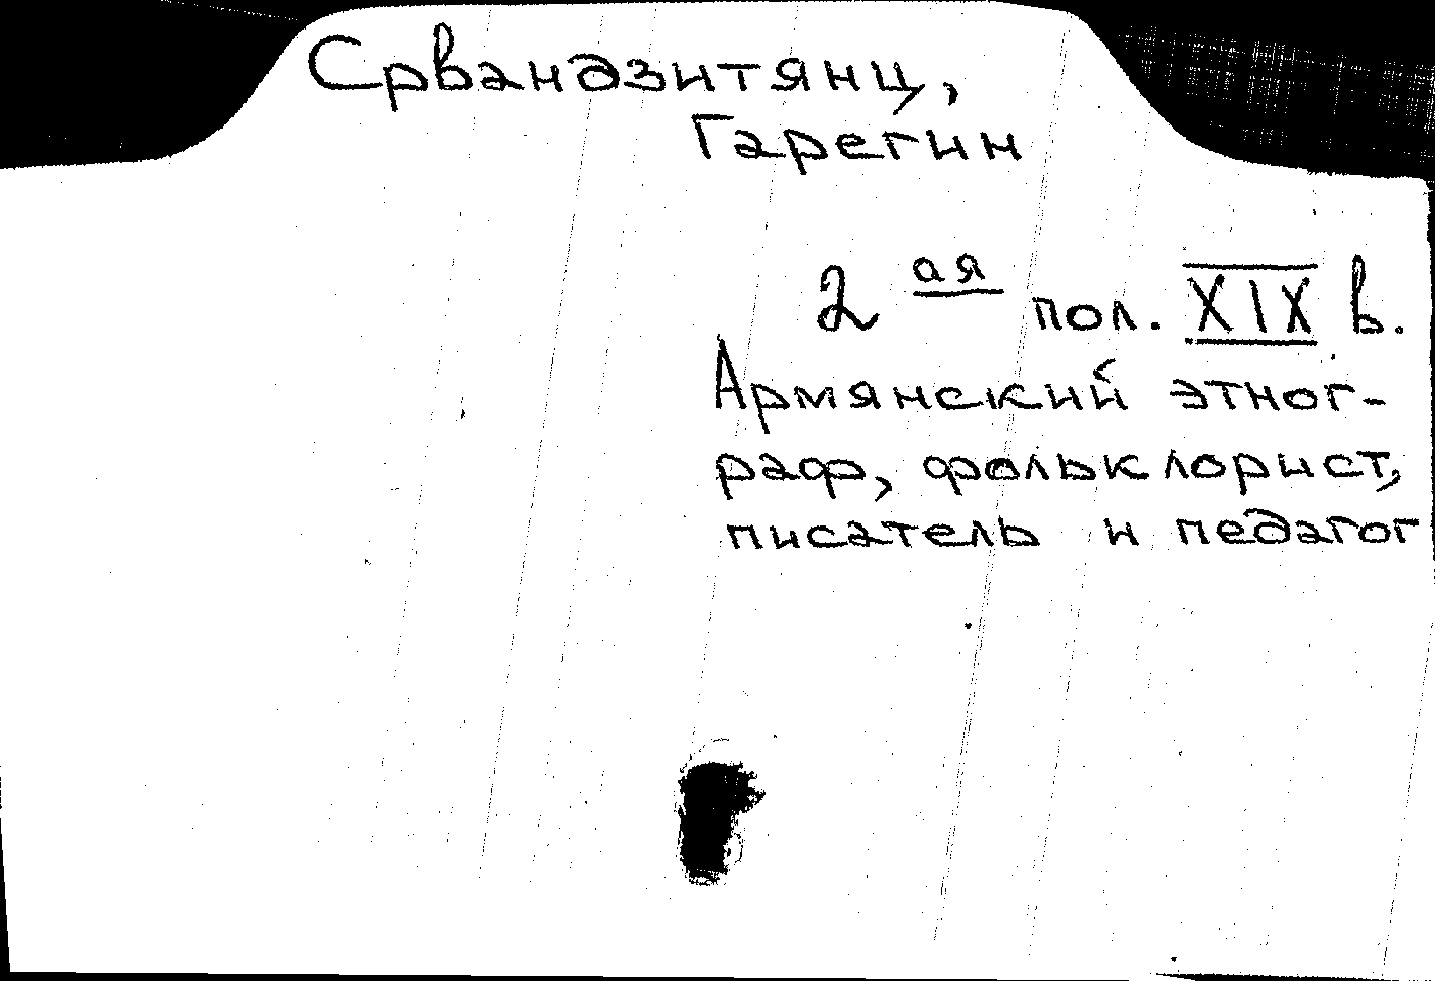 Срвандзитянц,
Гарегин
2 ая пол. XIX в.
Армянский этног-
раф, фольклорист,
писатель и педагог